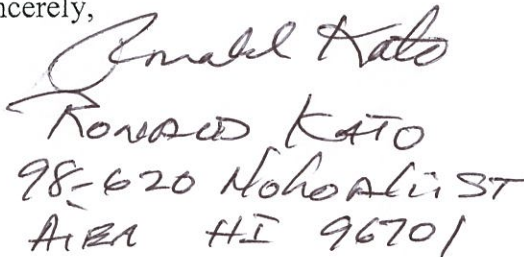 ncerely,
Ronald Kato
RONALD KATO
98-620 Nohoalii ST
AIEA HI 96701